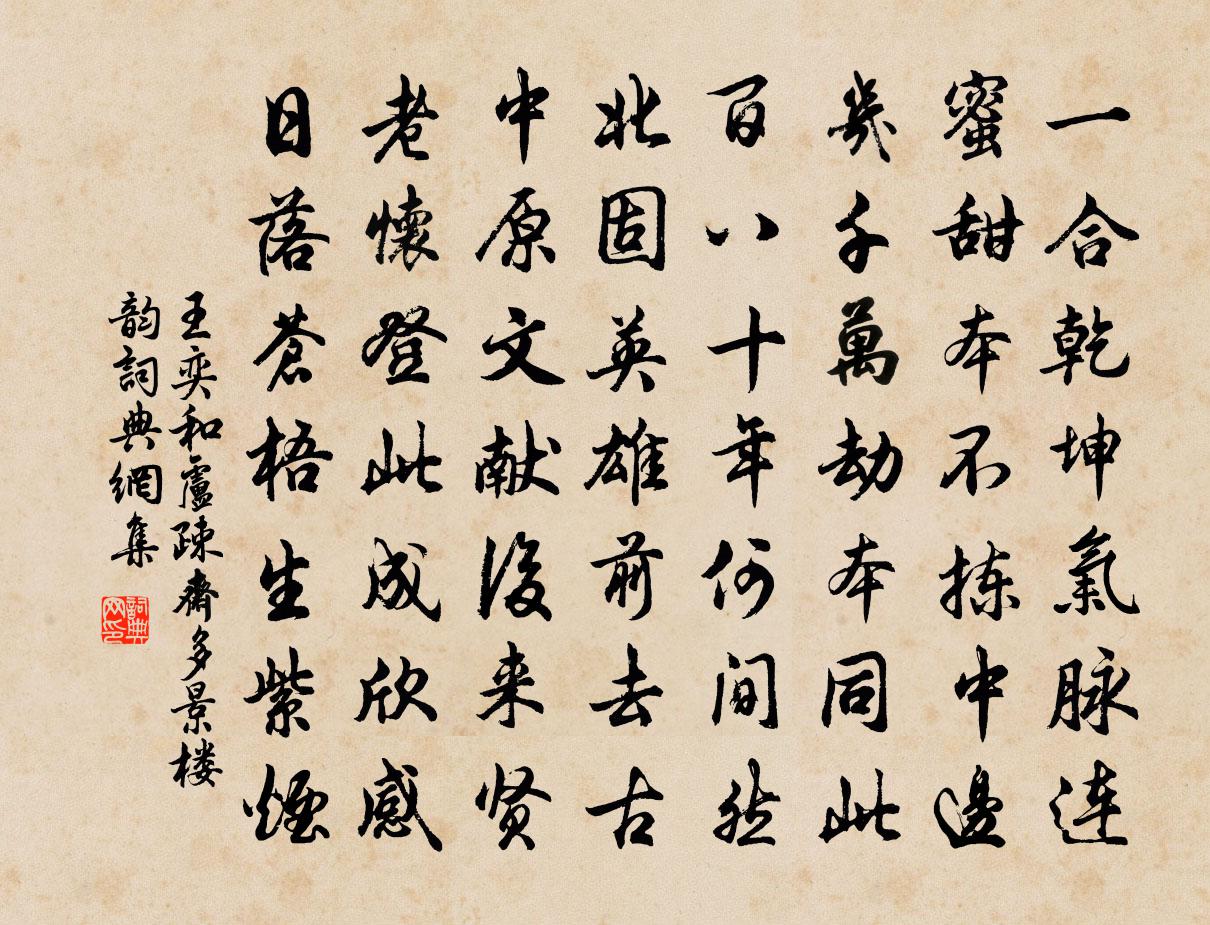 一合乾坤氣脉連
蜜甜本不拣中邊
幾千萬劫本同此
百八十年何间然
北固英雄前去古
中原文献後来贤
老懷登此成欣感
日落蒼梧生紫煙
王奕和盧疎齋多景楼
韵詞典網集
詞典网印